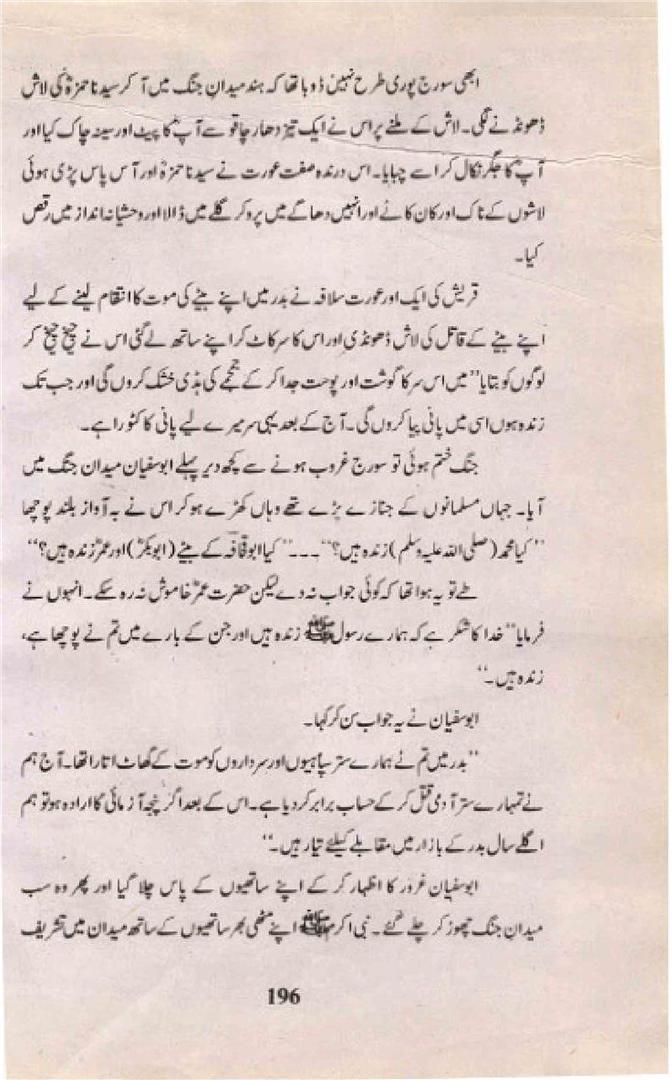 ابھی سورج پوری طرح نہیں ڈوبا تھا کہ ہند میدانِ جنگ میں آ کر سیدنا حمزہؓ کی لاش
ڈھونڈنے لگی۔ لاش کے ملنے پر اس نے ایک تیز دھار چاقو سے آپؓ کا پیٹ اور سینہ چاک کیا اور
آپؓ کا جگر نکال کر اسے چبایا۔ اس درندہ صفت عورت نے سیدنا حمزہؓ اور آس پاس پڑی ہوئی
لاشوں کے ناک اور کان کاٹے اور انہیں دھاگے میں پرو کر گلے میں ڈالا اور وحشیانہ انداز میں رقص
کیا۔
قریش کی ایک اور عورت سلافہ نے بدر میں اپنے بیٹے کی موت کا انتقام لینے کے لیے
اپنے بیٹے کے قاتل کی لاش ڈھونڈی اور اس کا سر کاٹ کر اپنے ساتھ لے گئی اس نے چیخ چیخ کر
لوگوں کو بتایا ”میں اس سر کا گوشت اور پوست جدا کر کے جمجمے کی ہڈی خشک کروں گی اور جب تک
زندہ ہوں اسی میں پانی پیا کروں گی۔ آج کے بعد یہی سر میرے لیے پانی کا کٹورا ہے۔
جنگ ختم ہوئی تو سورج غروب ہونے سے کچھ دیر پہلے ابوسفیان میدان جنگ میں
آیا۔ جہاں مسلمانوں کے جنازے پڑے تھے وہاں کھڑے ہو کر اس نے بہ آواز بلند پوچھا
”کیا محمد (صلی اللہ علیہ وسلم) زندہ ہیں؟“۔۔۔”کیا ابوقحافہ کے بیٹے (ابوبکرؓ) اور عمرؓ زندہ ہیں؟“
طے تو یہ ہوا تھا کہ کوئی جواب نہ دے لیکن حضرت عمرؓ خاموش نہ رہ سکے۔ انہوں نے
فرمایا ”خدا کا شکر ہے کہ ہمارے رسول ﷺ زندہ ہیں اور جن کے بارے میں تم نے پوچھا ہے،
زندہ ہیں۔“
ابوسفیان نے یہ جواب سن کر کہا۔
”بدر میں تم نے ہمارے ستر سپاہیوں اور سرداروں کو موت کے گھاٹ اتارا تھا۔ آج ہم
نے تمہارے ستر آدمی قتل کر کے حساب برابر کر دیا ہے۔ اس کے بعد اگر پنجہ آزمائی کا ارادہ ہو تو ہم
اگلے سال بدر کے بازار میں مقابلے کیلئے تیار ہیں۔“
ابوسفیان غرور کا اظہار کر کے اپنے ساتھیوں کے پاس چلا گیا اور پھر وہ سب
میدانِ جنگ چھوڑ کر چلے گئے۔ نبی اکرم ﷺ اپنے مٹھی بھر ساتھیوں کے ساتھ میدان میں تشریف
196